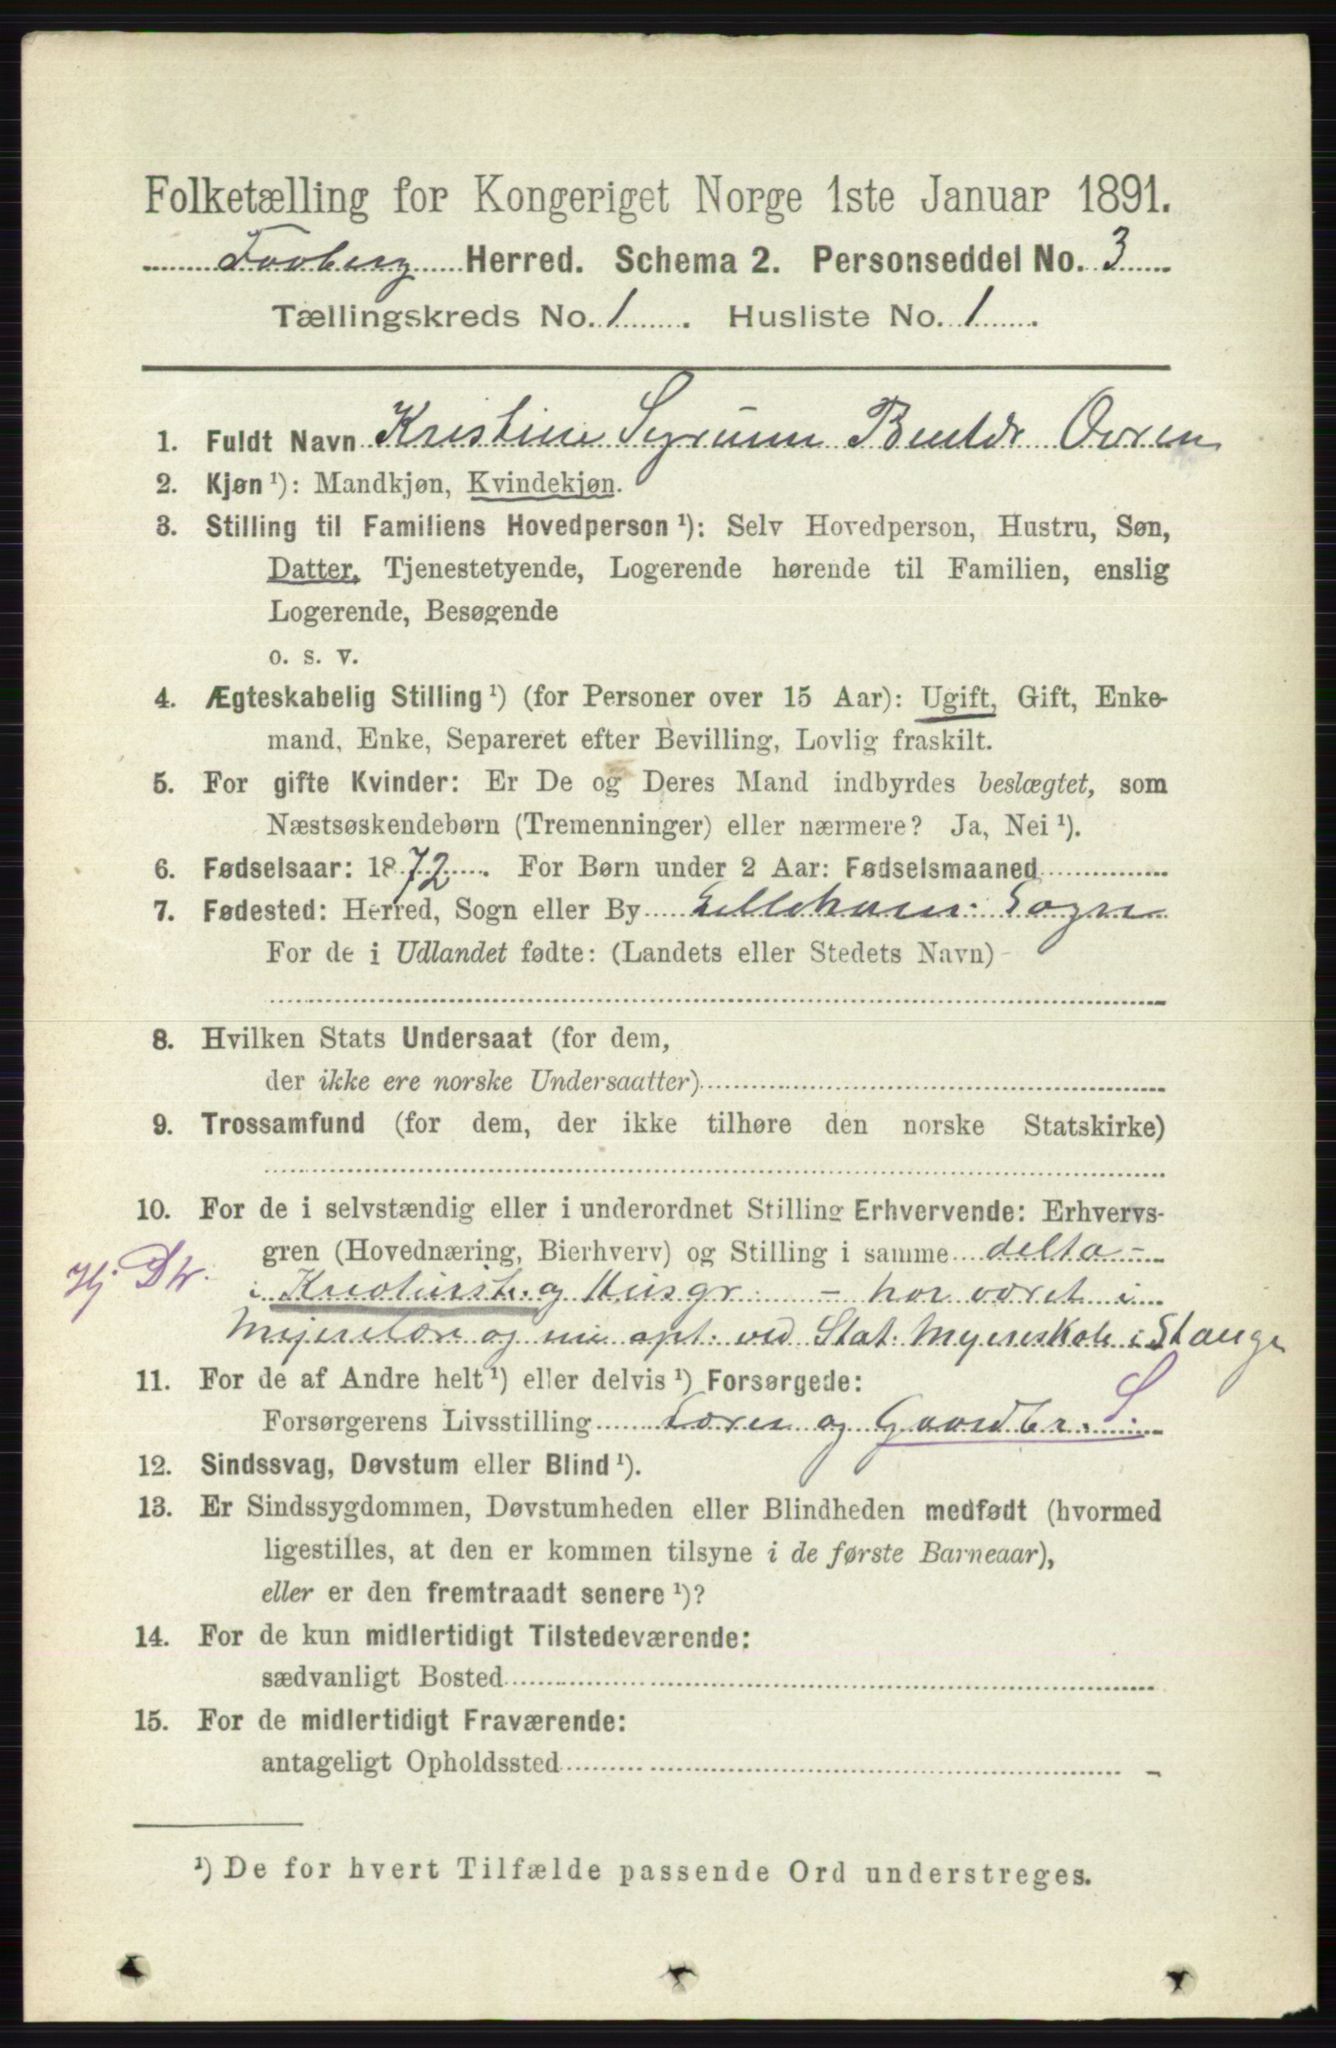 Folketælling for Kongeriget Norge 1ste Januar 1891.
Faaberg Herred. Schema 2. Personseddel No. 3
Tællingskreds No. 1. Husliste No. 1
1. Fuldt Navn Kristine
2. Kjøn ¹): Mandkjøn, Kvindekjøn.
3. Stilling til Familiens Hovedperson ¹): Selv Hovedperson, Hustru, Søn,
Datter, Tjenestetyende, Logerende hørende til Familien, enslig
Logerende, Besøgende
o. s. v.
4. Ægteskabelig Stilling ¹) (for Personer over 15 Aar): Ugift, Gift, Enke-
mand, Enke, Separeret efter Bevilling, Lovlig fraskilt.
5. For gifte Kvinder: Er De og Deres Mand indbyrdes beslægtet, som
Næstsøskendebørn (Tremenninger) eller nærmere? Ja, Nei ¹).
6. Fødselsaar: 1872. For Børn under 2 Aar: Fødselsmaaned
7. Fødested: Herred, Sogn eller By Lilleham: Sogn
For de i Udlandet fødte: (Landets eller Stedets Navn)
8. Hvilken Stats Undersaat (for dem,
der ikke ere norske Undersaatter)
9. Trossamfund (for dem, der ikke tilhøre den norske Statskirke)
10. For de i selvstændig eller i underordnet Stilling Erhvervende: Erhvervs-
gren (Hovednæring, Bierhverv) og Stilling i samme delta-
Hj
i Kreaturst. og Husgr. - har været i
og nu ved Stat: Myereskole i Stange
11. For de af Andre helt ¹) eller delvis ¹) Forsørgede:
Forsørgerens Livsstilling og Gaardbr. S
12. Sindssvag, Døvstum eller Blind ¹).
13. Er Sindssygdommen, Døvstumheden eller Blindheden medfødt (hvormed
ligestilles, at den er kommen tilsyne i de første Barneaar),
eller er den fremtraadt senere ¹)?
14. For de kun midlertidigt Tilstedeværende:
sædvanligt Bosted
15. For de midlertidigt Fraværende:
antageligt Opholdssted
¹) De for hvert Tilfælde passende Ord understreges.